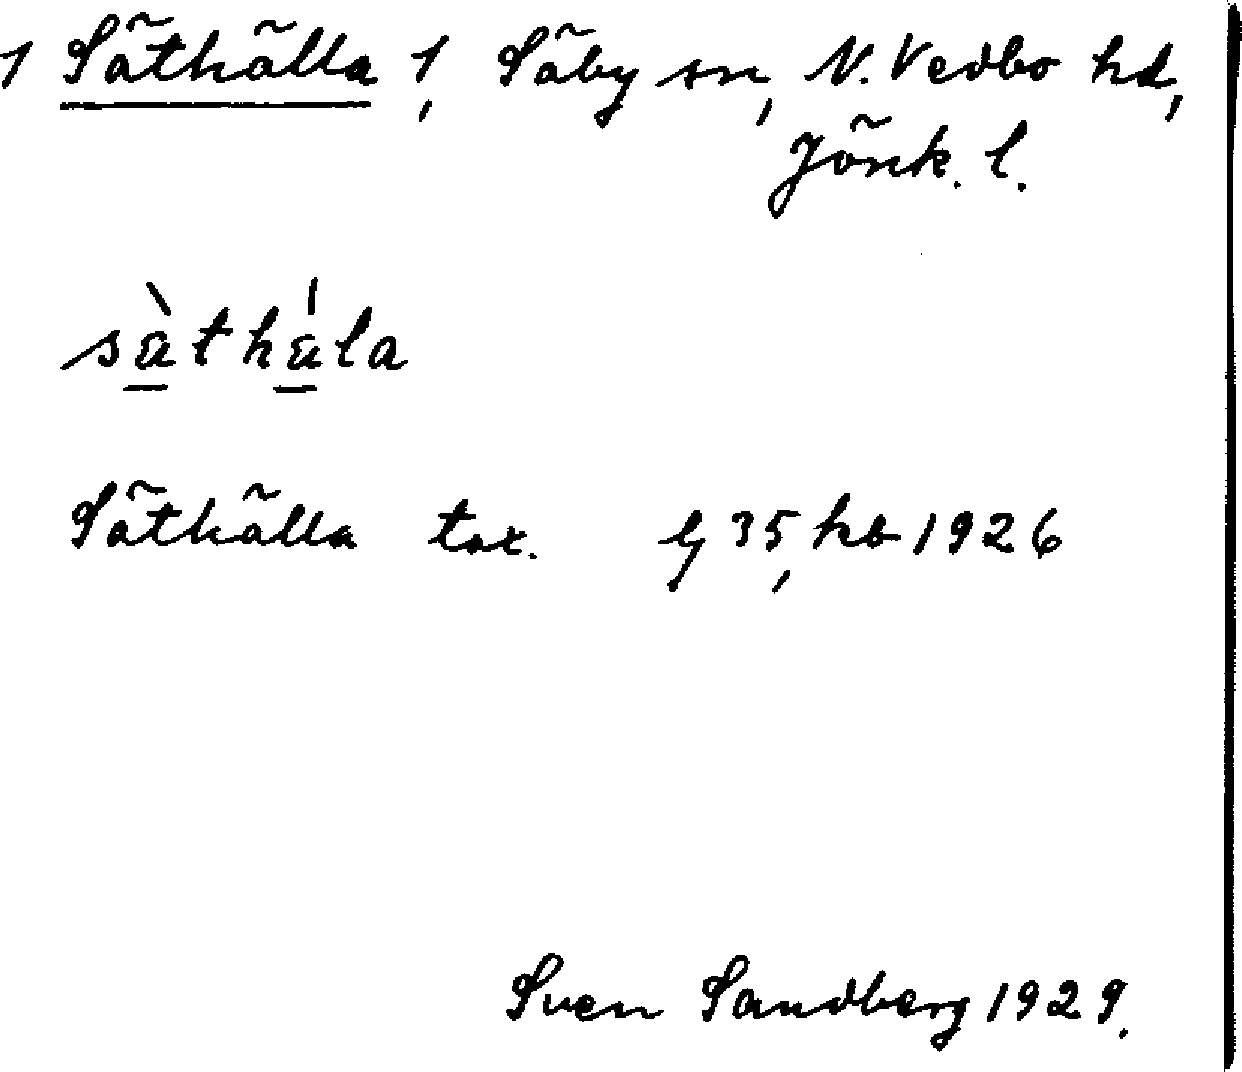 1 Säthälla 1, Säby sn, N. Vedbo hd,
Jönk. l.
sàthála
Säthälla tax. lj 35, hb 1926
Sven Sandberg 1929.